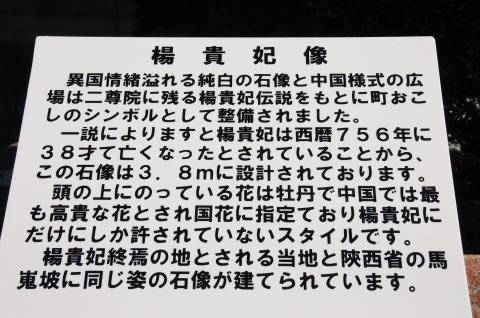 楊貴妃像
異国情緒溢れる純白の石像と中国様式の広
場は二尊院に残る楊貴妃伝説をもとに町おこ
しのシンボルとして整備されました。
一説によりますと楊貴妃は西暦７５６年に
３８才て亡くなったとされていることから、
この石像は３．８ｍに設計されております。
頭の上にのっている花は牡丹で中国では最
も高貴な花とされ国花に指定ており楊貴妃に
だけにしか許されていないスタイルです。
楊貴妃終焉の地とされる当地と陝西省の馬
嵬坡に同じ姿の石像が建てられています。